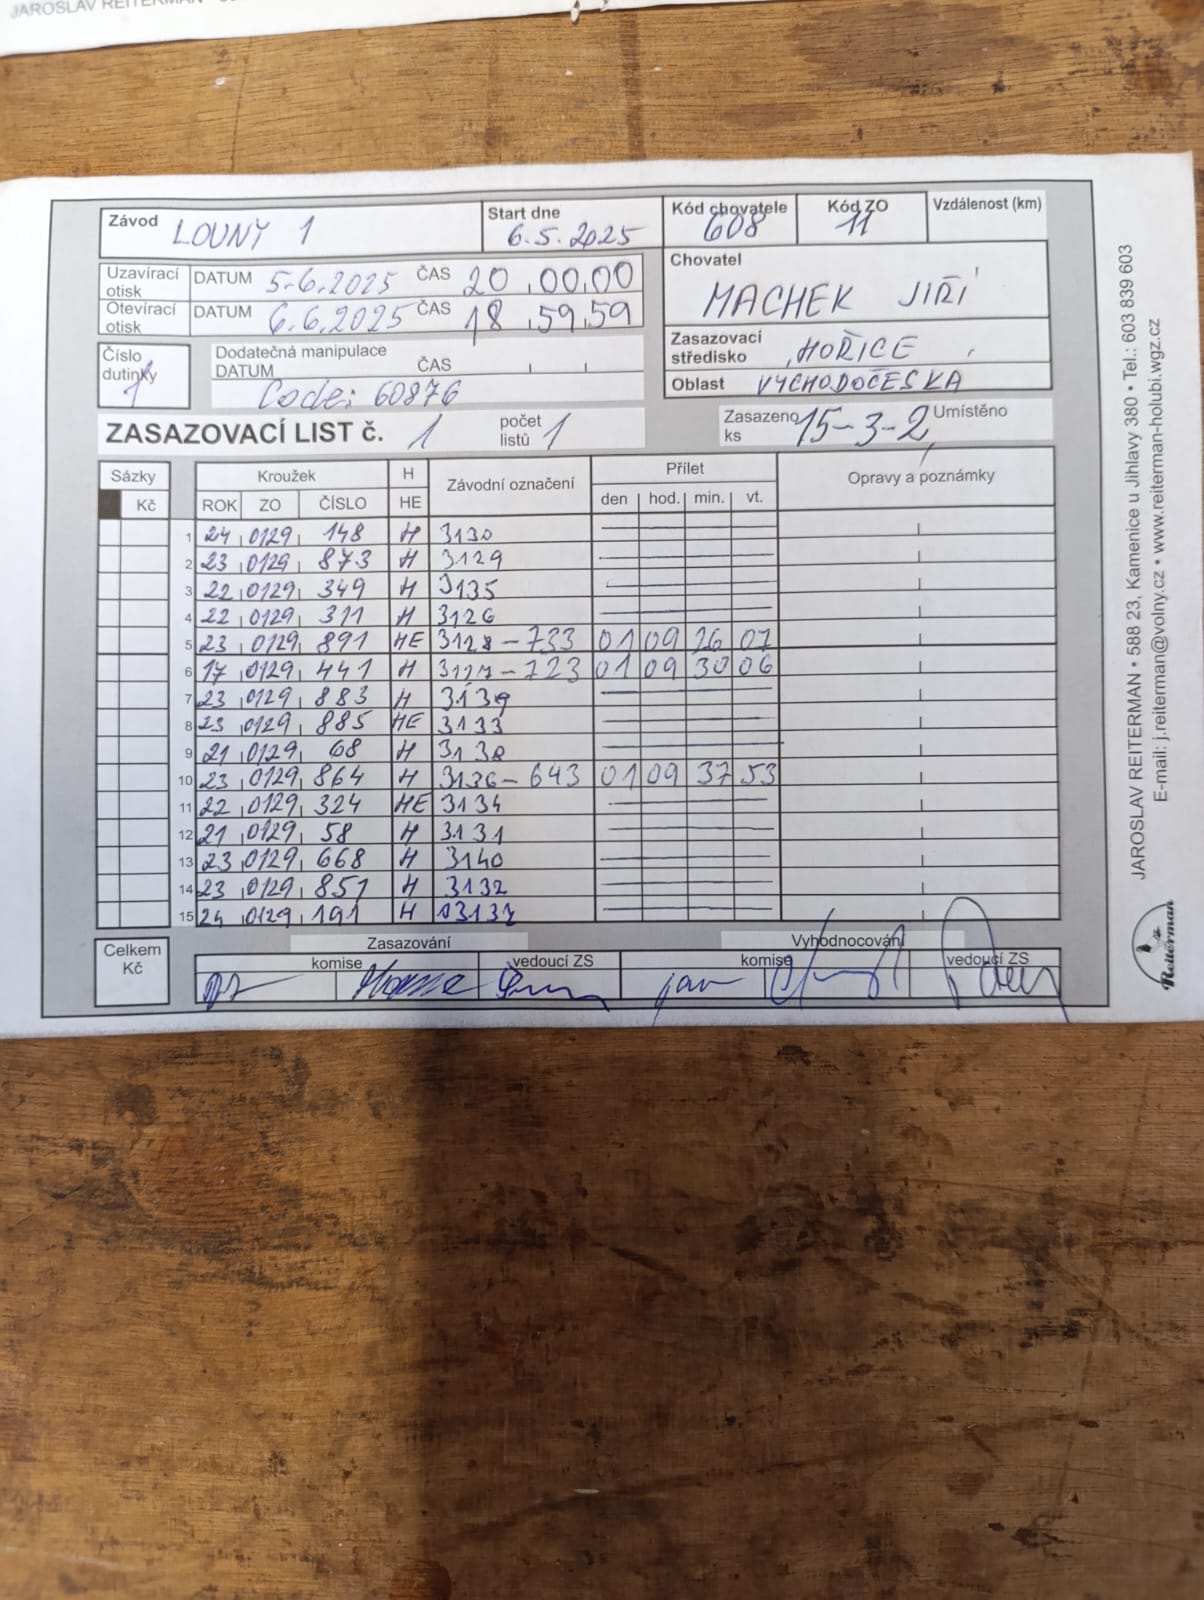 Závod LOUNY 1
Start dne 6.5.2025
Kód chovatele 608
Kód ZO 11
Vzdálenost (km)
Uzavírací otisk DATUM 5.6.2025 ČAS 20,00,00
Otevírací otisk DATUM 6.6.2025 ČAS 18,59,59
Chovatel
MACHEK JIŘÍ
Číslo dutinky 1
Dodatečná manipulace
DATUM ČAS
Code: 60876
Zasazovací středisko HOŘICE
Oblast VÝCHODOČESKÁ
ZASAZOVACÍ LIST č. 1
počet listů 1
Zasazeno ks 15-3-2 Umístěno
Sázky Kroužek H Závodní označení Přílet Opravy a poznámky
Kč ROK ZO ČÍSLO HE den hod. min. vt.
1 24 0129 148 H 3130
2 23 0129 873 H 3129
3 22 0129 349 H 3135
4 22 0129 311 H 3126
5 23 0129 891 HE 3128-733 01 09 26 07
6 17 0129 441 H 3127-723 01 09 30 06
7 23 0129 883 H 3139
8 23 0129 885 HE 3133
9 21 0129 68 H 3138
10 23 0129 864 H 3136-643 01 09 37 53
11 22 0129 324 HE 3134
12 21 0129 58 H 3131
13 23 0129 668 H 3140
14 23 0129 851 H 3132
15 24 0129 191 H 3137
Celkem Kč
Zasazování Vyhodnocování
komise vedoucí ZS komise vedoucí ZS
JAROSLAV REITERMAN • 588 23, Kamenice u Jihlavy 380 • Tel.: 603 839 603
E-mail: j.reiterman@volny.cz • www.reiterman-holubi.wgz.cz
Reiterman
JAROSLAV REITERMAN